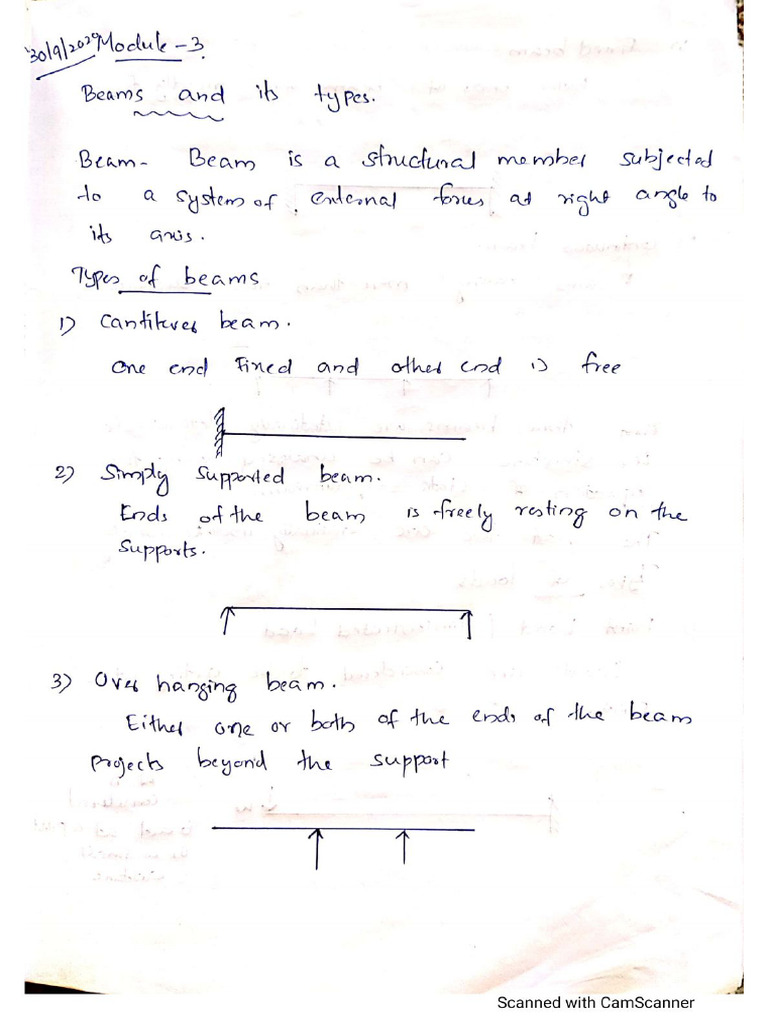 30/9/2020 Module - 3.
Beams and its types.
Beam - Beam is a structural member subjected
to a system of external forces at right angle to
its axis.
Types of beams
1) Cantilever beam.
One end Fixed and other end is free
2) Simply supported beam.
Ends of the beam is freely resting on the
supports.
3) Over hanging beam.
Either one or both of the ends of the beam
projects beyond the support
Scanned with CamScanner